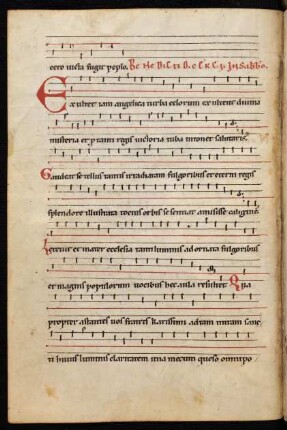 cero uicla fugit pepso. Be ne di c ti o. c e r e i. In Sabbo.
Exultet iam angelica turba celorum exultent diuina
misteria et p tam regis uictoria tuba intonet salutaris.
Gaudeat se tellus tantis irradiatam fulgoribus et eterni regis
splendore illustrata totius orbis se sentiat amisisse caliginem.
Letetur et mater ecclesia tanti luminis adornata fulgoribus
et magnis populorum uocibus hec aula resultet. Qua
propter astantes uos fratres karissimi ad tam miram sanc
ti huius luminis claritatem una mecum queso omnipo